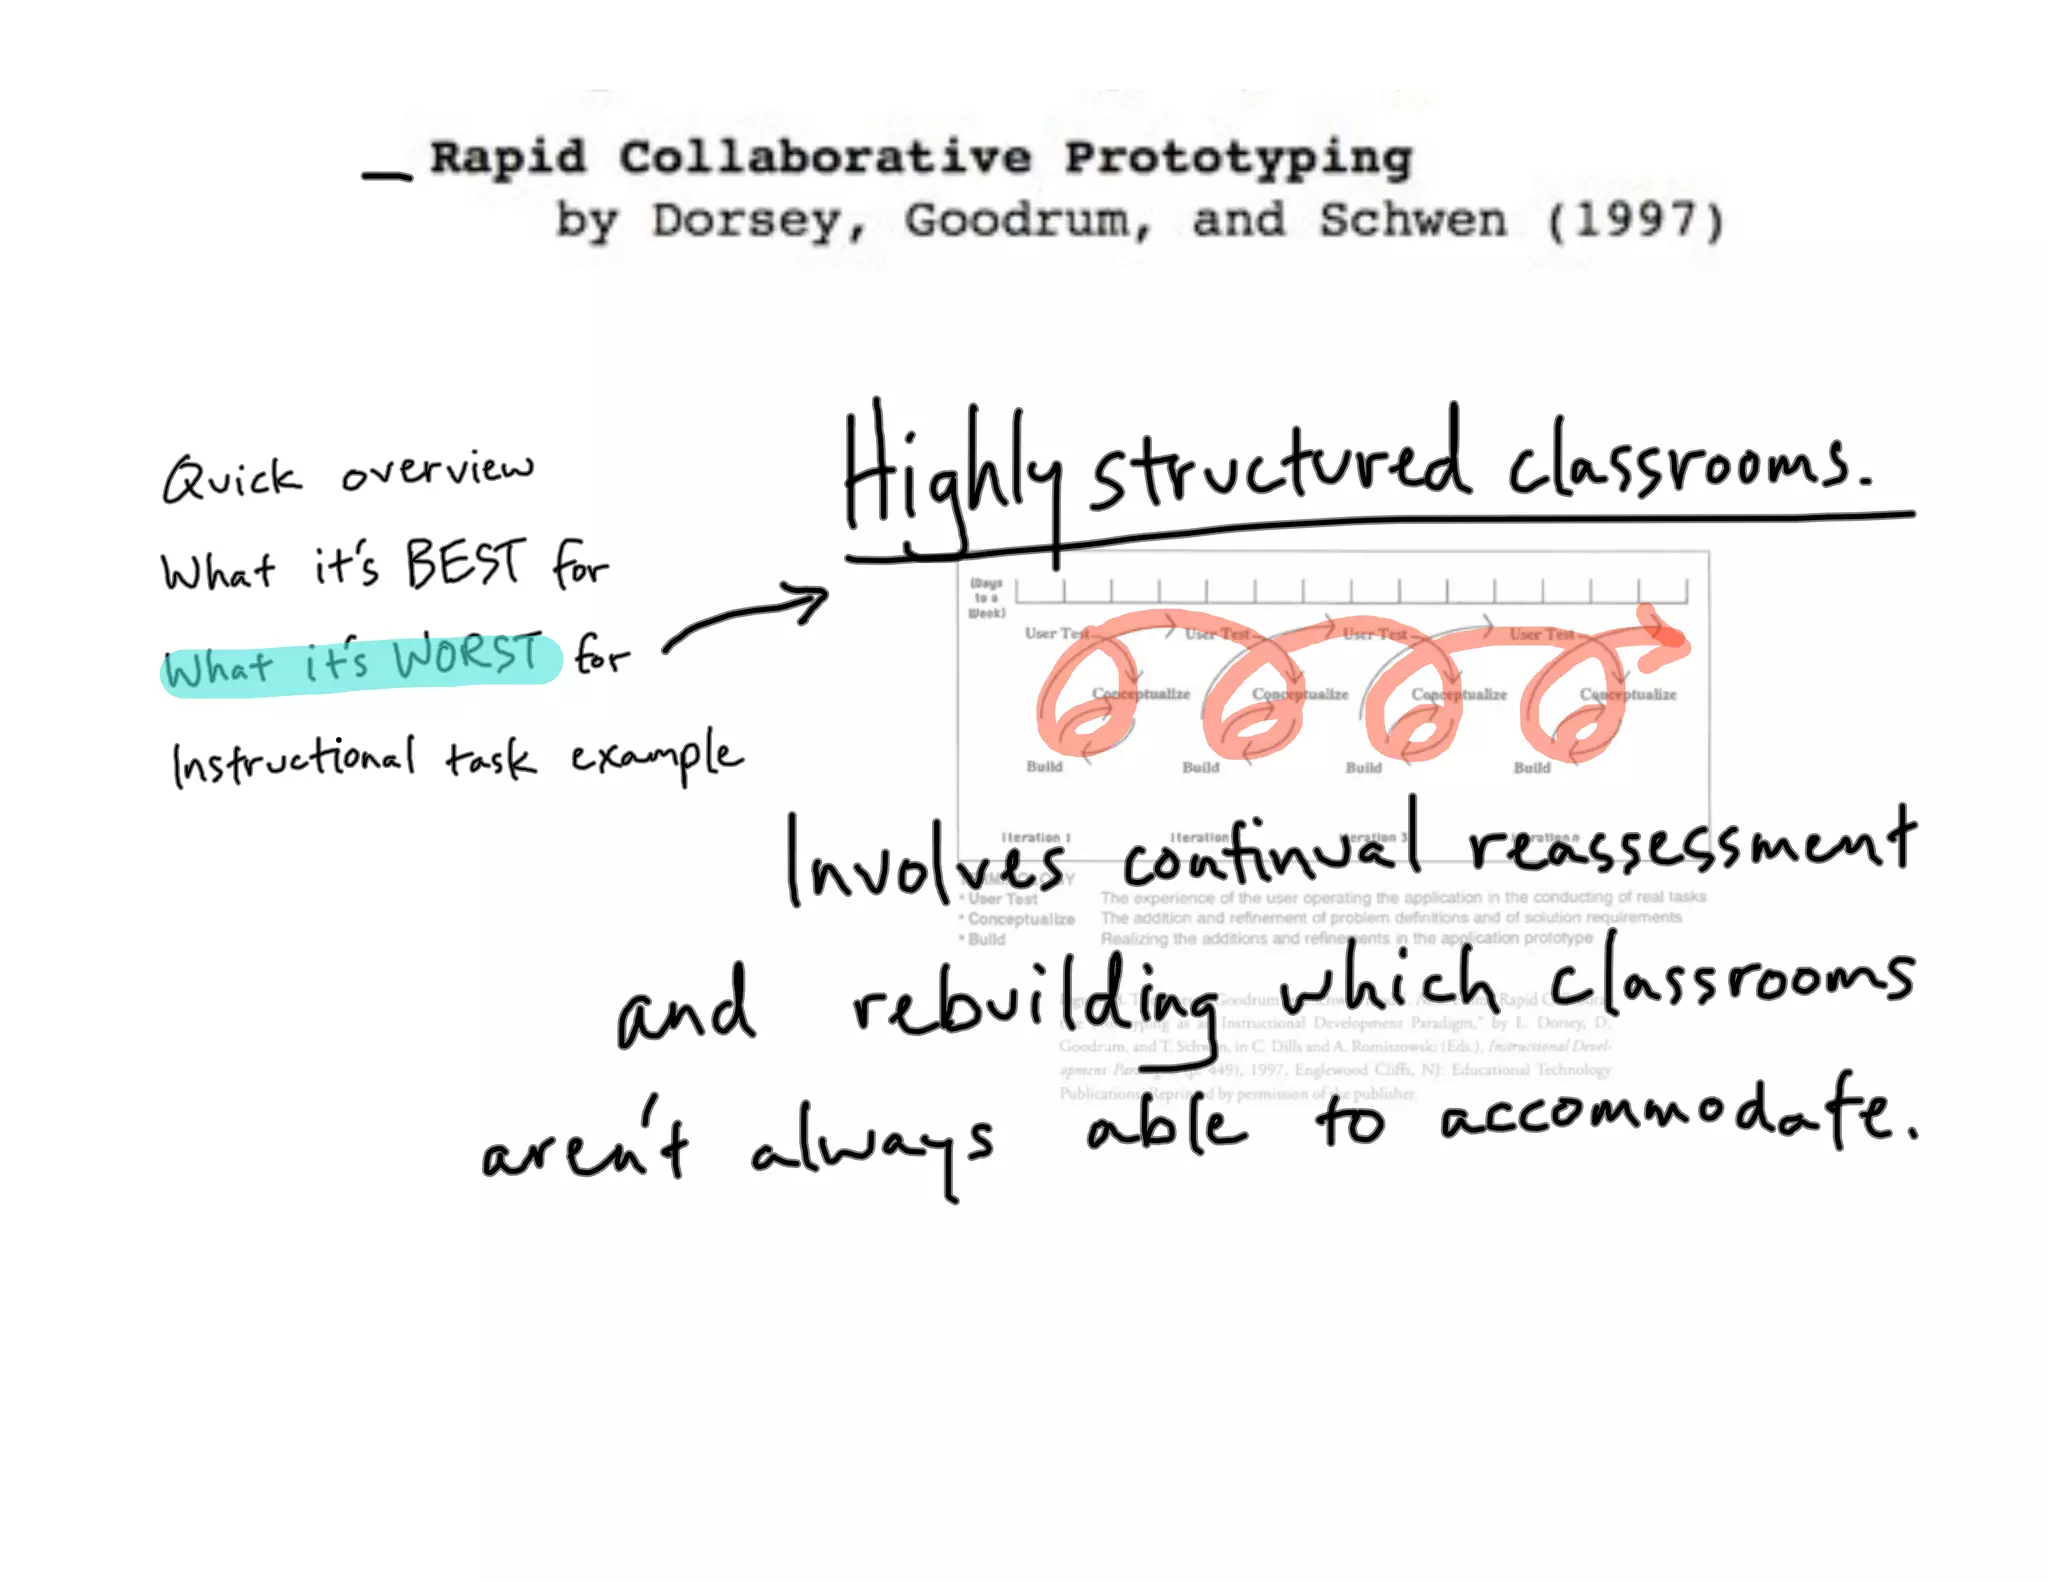 Rapid Collaborative Prototyping
by Dorsey, Goodrum, and Schwen (1997)
Quick overview
What it's BEST for
What it's WORST for
Instructional task example
Highly structured classrooms.
(Days
to a
Week)
User Test User Test User Test User Test
Conceptualize Conceptualize Conceptualize Conceptualize
Build Build Build Build
Iteration 1 Iteration
Involves continual reassessment
* User Test The experience of the user operating the application in the conducting of real tasks
* Conceptualize The addition and refinement of problem definitions and of solution requirements
* Build Realizing the additions and refinements in the application prototype
and rebuilding which classrooms
Goodrum Rapid
Instructional Development Paradigm," by L. Dorsey, D.
Goodrum, and T. Schwen, in C. Dills and A. Romiszowski (Eds.), Instructional Devel-
opment 449), 1997, Englewood Cliffs, NJ: Educational Technology
Publications. Reprinted by permission of the publisher.
aren't always able to accommodate.